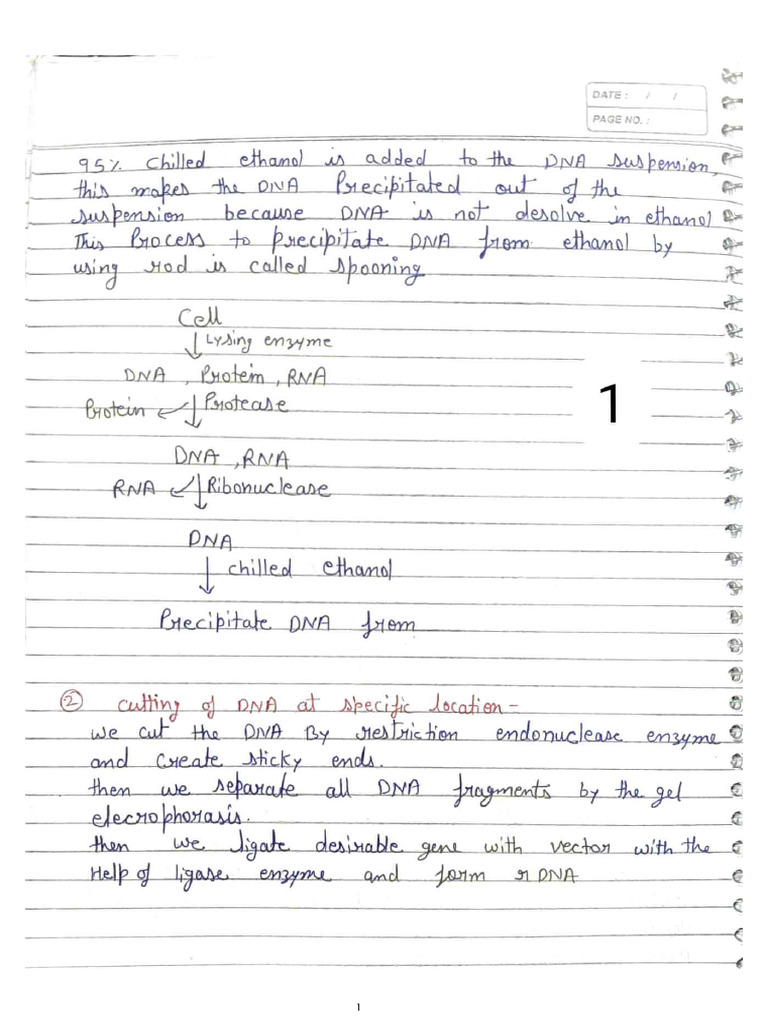 DATE: / /
PAGE NO.:
95% chilled ethanol is added to the DNA suspension,
this makes the DNA Precipitated out of the
suspension because DNA is not desolve in ethanol
This Process to precipitate DNA from ethanol by
using rod is called spooning
Cell
Lysing enzyme
DNA, Protein, RNA
Protein Protease
DNA, RNA
RNA Ribonuclease
DNA
chilled ethanol
Precipitate DNA from
1
② cutting of DNA at specific location-
we cut the DNA By restriction endonuclease enzyme
and create sticky ends.
then we separate all DNA fragments by the gel
elecrophorasis.
then we ligate desirable gene with vector with the
Help of ligase enzyme and form r DNA
1